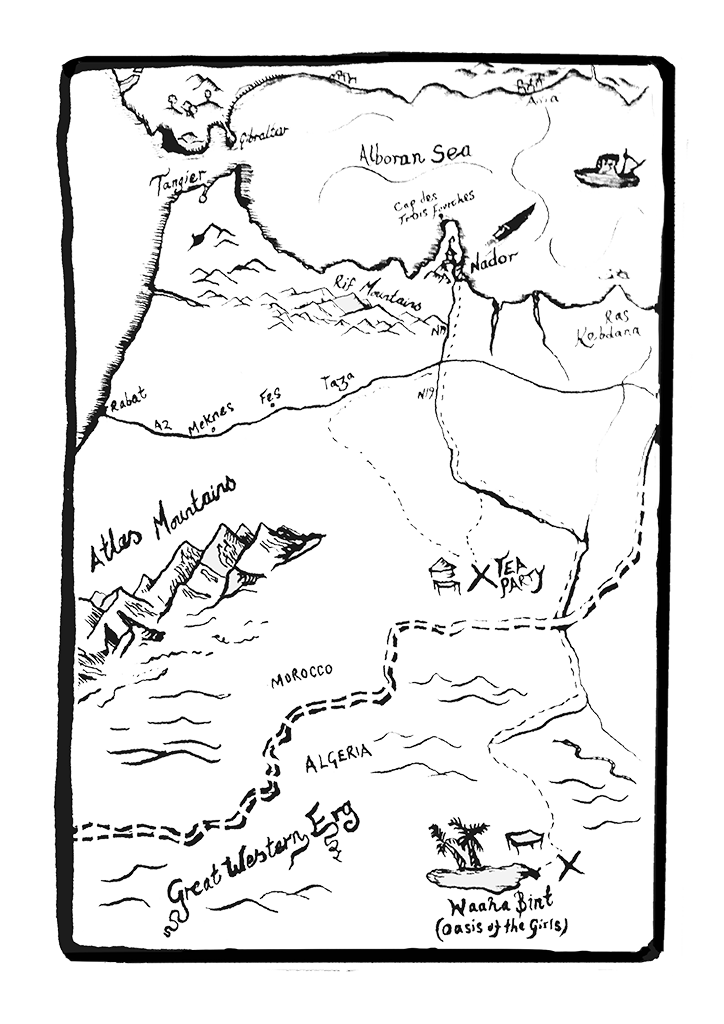 Gibraltar
Alboran Sea
Tangier
Cap des
Trois Fourches
Nador
Rif Mountains
Ras
Kebdana
N19
Rabat
A2
Meknes
Fes
Taza
N19
Atlas Mountains
TEA
PARTY
MOROCCO
ALGERIA
Great Western Erg
Waaha Bint
(Oasis of the Girls)